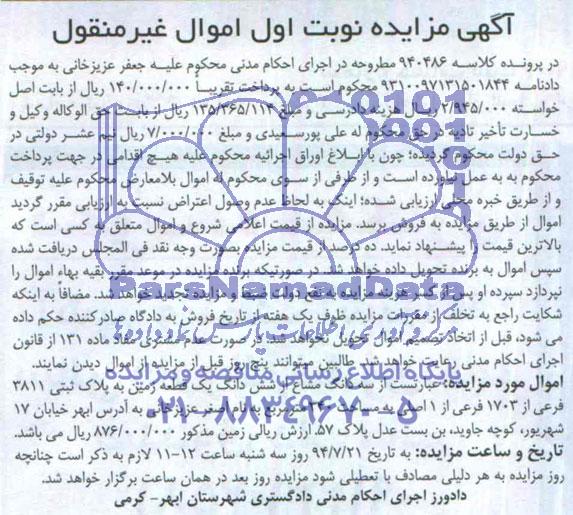 آگهی مزایده نوبت اول اموال غیرمنقول
در پرونده کلاسه ۹۴۰۴۸۶ مطروحه در اجرای احکام مدنی محکوم علیه جعفر عزیزخانی به موجب
دادنامه ۹۳۱۰۰۹۷۱۳۱۵۰۱۸۴۴ محکوم است به پرداخت تقریباً ۱۴۰/۰۰۰/۰۰۰ ریال از بابت اصل
خواسته ۲/۹۴۵/۰۰۰ ریال هزینه دادرسی و مبلغ ۱۳۵/۳۶۵/۱۱۴ ریال از بابت حق الوکاله وکیل و
خسارت تأخیر تادیه در حق محکوم له علی پورسعیدی و مبلغ ۷/۰۰۰/۰۰۰ ریال نیم عشر دولتی در
حق دولت محکوم گردیده؛ چون با ابلاغ اوراق اجرائیه محکوم علیه هیچ اقدامی در جهت پرداخت
محکوم به به عمل نیاورده است و از طرفی از سوی محکوم له اموال بلامعارض محکوم علیه توقیف
و از طریق خبره محلی ارزیابی شده؛ اینک به لحاظ عدم وصول اعتراض نسبت به ارزیابی مقرر گردید
اموال از طریق مزایده به فروش برسد. مزایده از قیمت اعلامی شروع و اموال متعلق به کسی است که
بالاترین قیمت را پیشنهاد نماید. ده درصد از قیمت مزایده بصورت وجه نقد فی المجلس دریافت شده
سپس اموال به برنده تحویل داده خواهد شد. در صورتیکه برنده مزایده در موعد مقرر بقیه بهاء اموال را
نپردازد سپرده او پس از کسر هزینه مزایده به نفع دولت ضبط و مزایده تجدید خواهد شد. مضافاً به اینکه
شکایت راجع به تخلف از مقررات مزایده ظرف یک هفته از تاریخ فروش به دادگاه صادرکننده حکم داده
می شود، قبل از اتخاذ تصمیم اموال تحویل نخواهد شد. در صورت عدم مشتری مفاد ماده ۱۳۱ از قانون
اجرای احکام مدنی رعایت خواهد شد. طالبین میتوانند پنج روز قبل از مزایده از اموال دیدن نمایند.
اموال مورد مزایده: عبارتست از سه دانگ مشاع از شش دانگ یک قطعه زمین به پلاک ثبتی ۳۸۱۱
فرعی از ۱۷۰۳ فرعی از ۱ اصلی به مساحت مترمربع به نام اصغر عزیزخانی به آدرس ابهر خیابان ۱۷
شهریور، کوچه جاوید، بن بست عدل پلاک ۵۷. ارزش ریالی زمین مذکور ۸۷۶/۰۰۰/۰۰۰ ریال می باشد.
تاریخ و ساعت مزایده: به تاریخ ۹۴/۷/۲۱ روز سه شنبه ساعت ۱۲-۱۱ لازم به ذکر است چنانچه
روز مزایده به هر دلیلی مصادف با تعطیلی شود مزایده روز بعد در همان ساعت برگزار خواهد شد.
دادورز اجرای احکام مدنی دادگستری شهرستان ابهر- کرمی
ParsNamadData
مرکز فرآوری اطلاعات پارس نماد داده ها
پایگاه اطلاع رسانی مناقصه و مزایده
۰۲۱-۸۸۳۴۹۶۷۰-۵